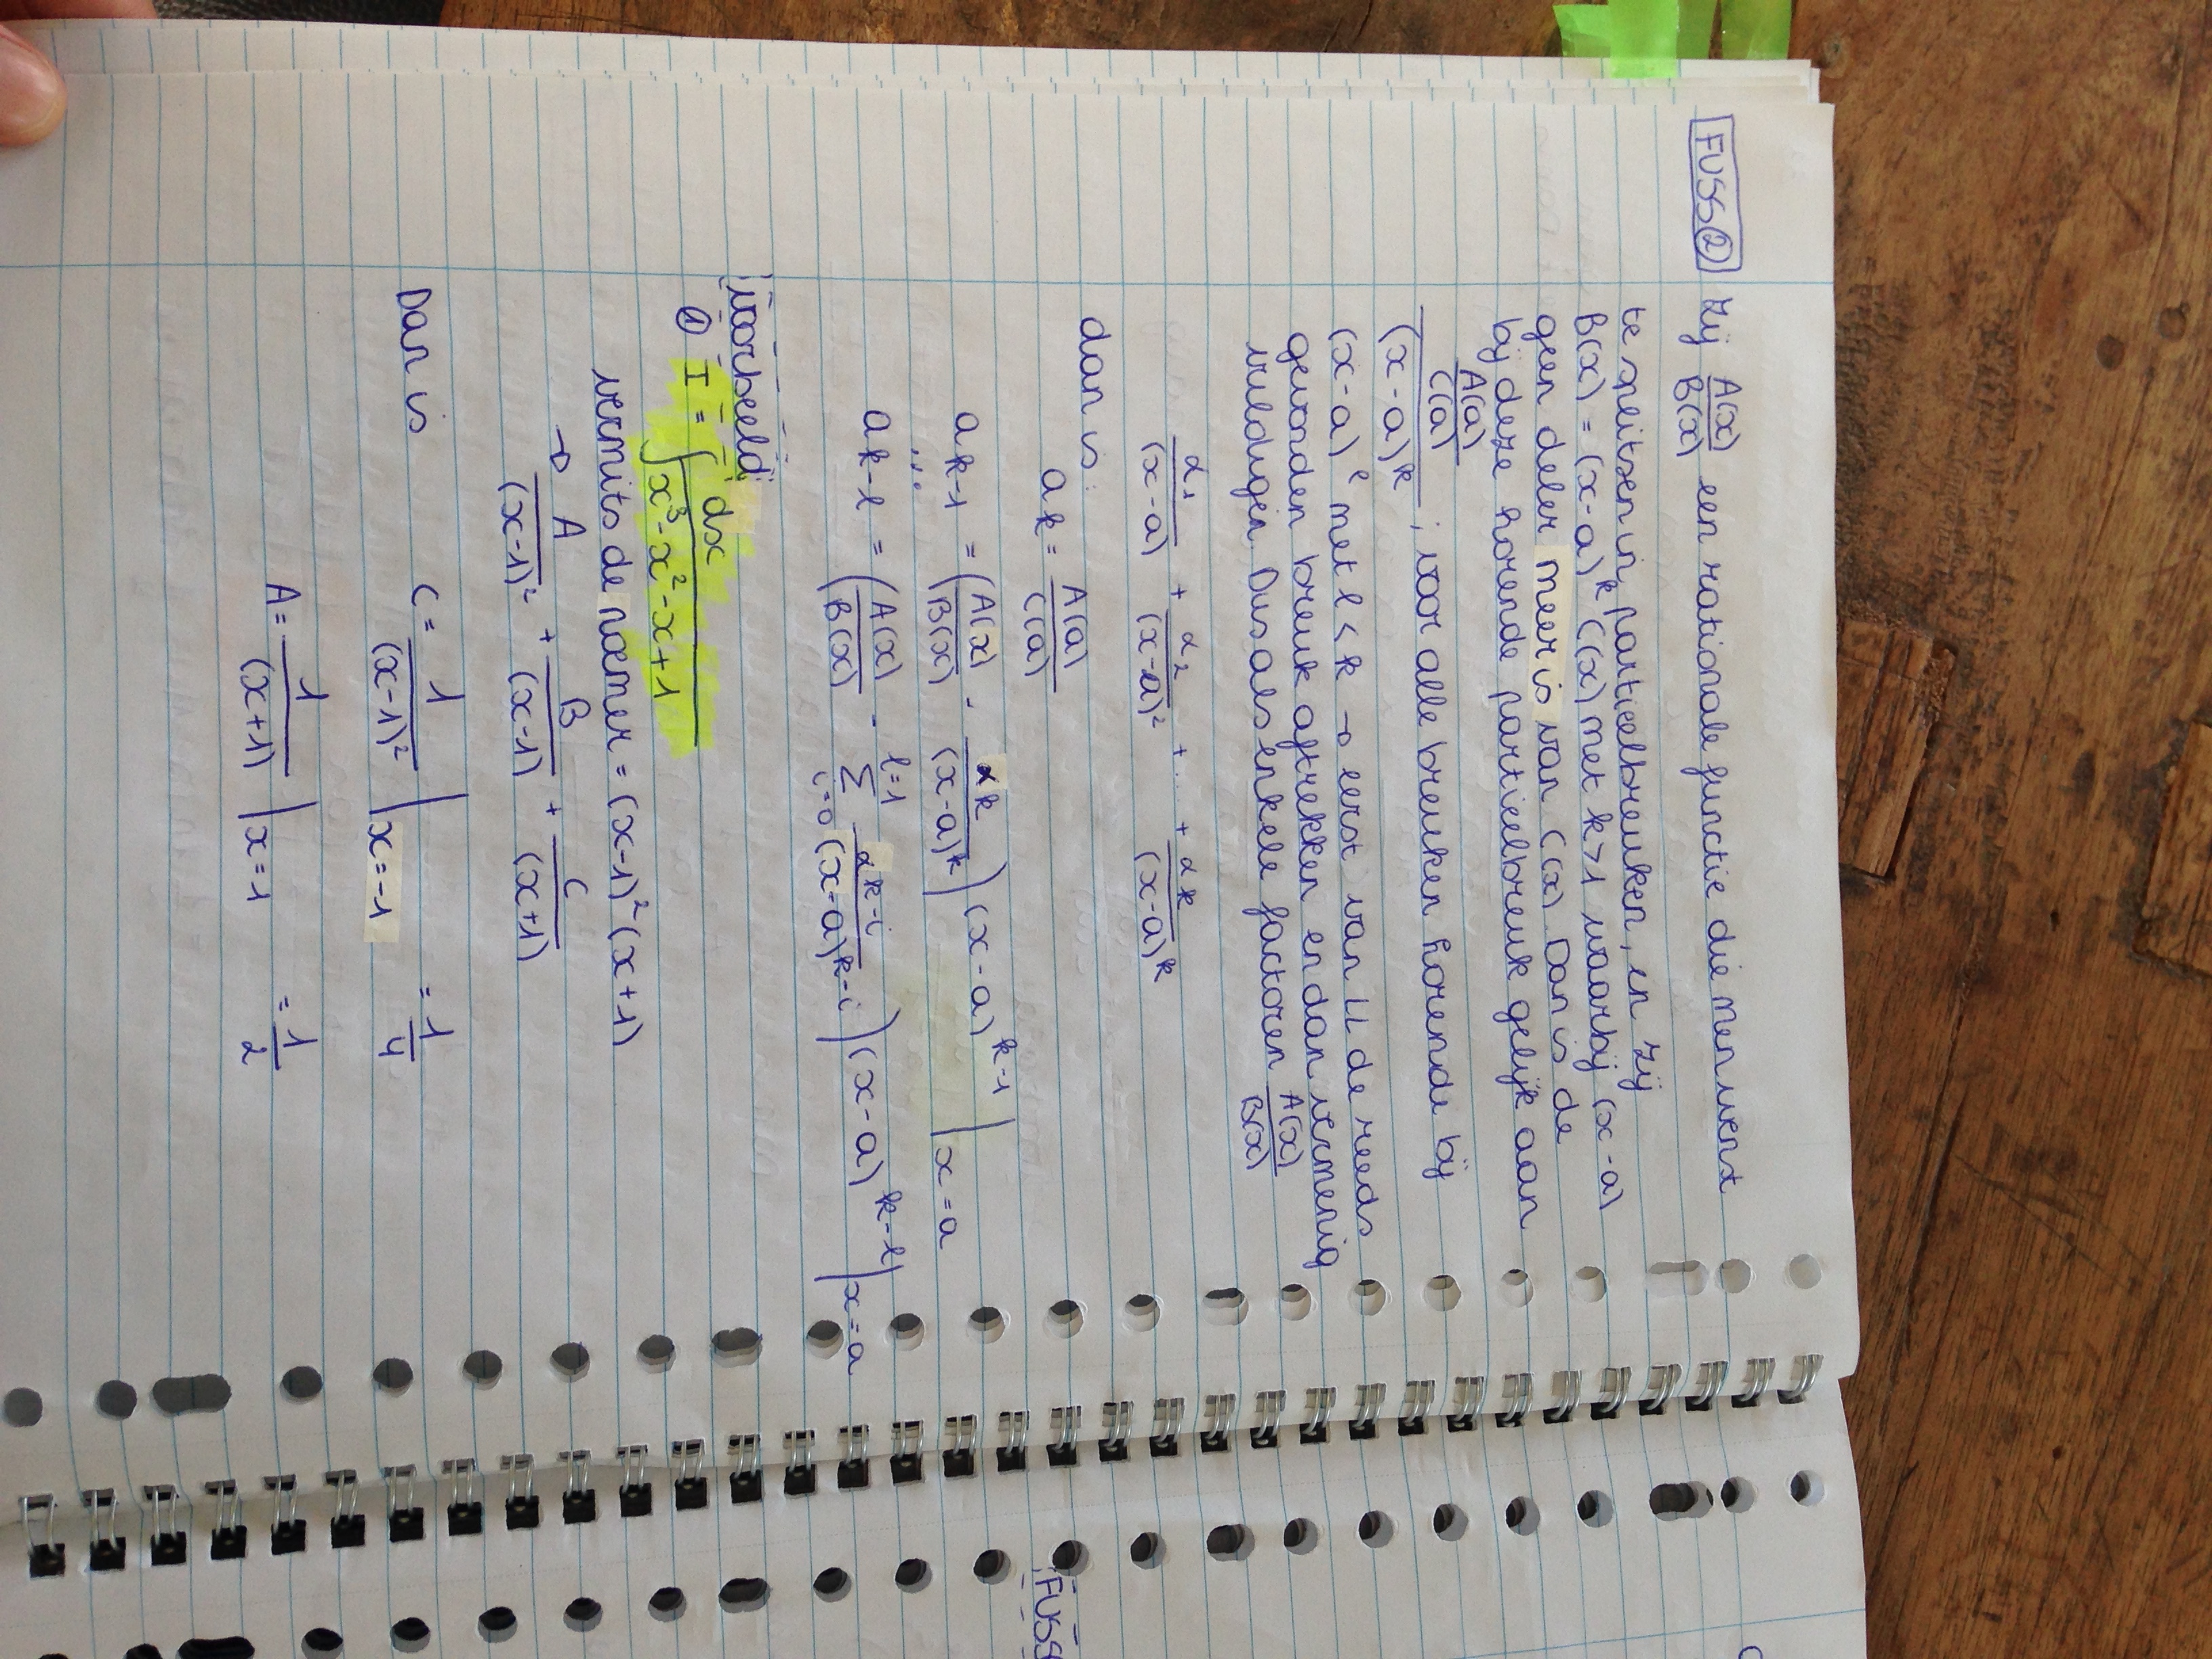 FUSS② Zij A(x)/B(x) een rationale functie die men wenst
te splitsen in partieelbreuken, en zij
B(x) = (x-a)^k C(x) met k>1 waarbij (x-a)
geen deler meer is van C(x). Dan is de
bij deze horende partieelbreuk gelijk aan
(A(a)/C(a))/(x-a)^k ; voor alle breuken horende bij
(x-a)^l met l<k → eerst van LL de reeds
gevonden breuk aftrekken en dan vermenig
vuldigen. Dus als enkele factoren A(x)/B(x)
α1/(x-a) + α2/(x-a)² + ... + αk/(x-a)^k
dan is:
a_k = A(a)/C(a)
a_k-1 = (A(x)/B(x) - αk/(x-a)^k) (x-a)^k-1 | x=a
...
a_k-l = (A(x)/B(x) - l=1 Σ i=0 αk-i/(x-a)^k-i) (x-a)^k-l | x=a
voorbeeld
① I = ∫ dx/x³-x²-x+1
vermits de noemer = (x-1)²(x+1)
→ A/(x-1)² + B/(x-1) + C/(x+1)
Dan is C = 1/(x-1)² | x=-1 = 1/4
A = 1/(x+1) | x=1 = 1/2